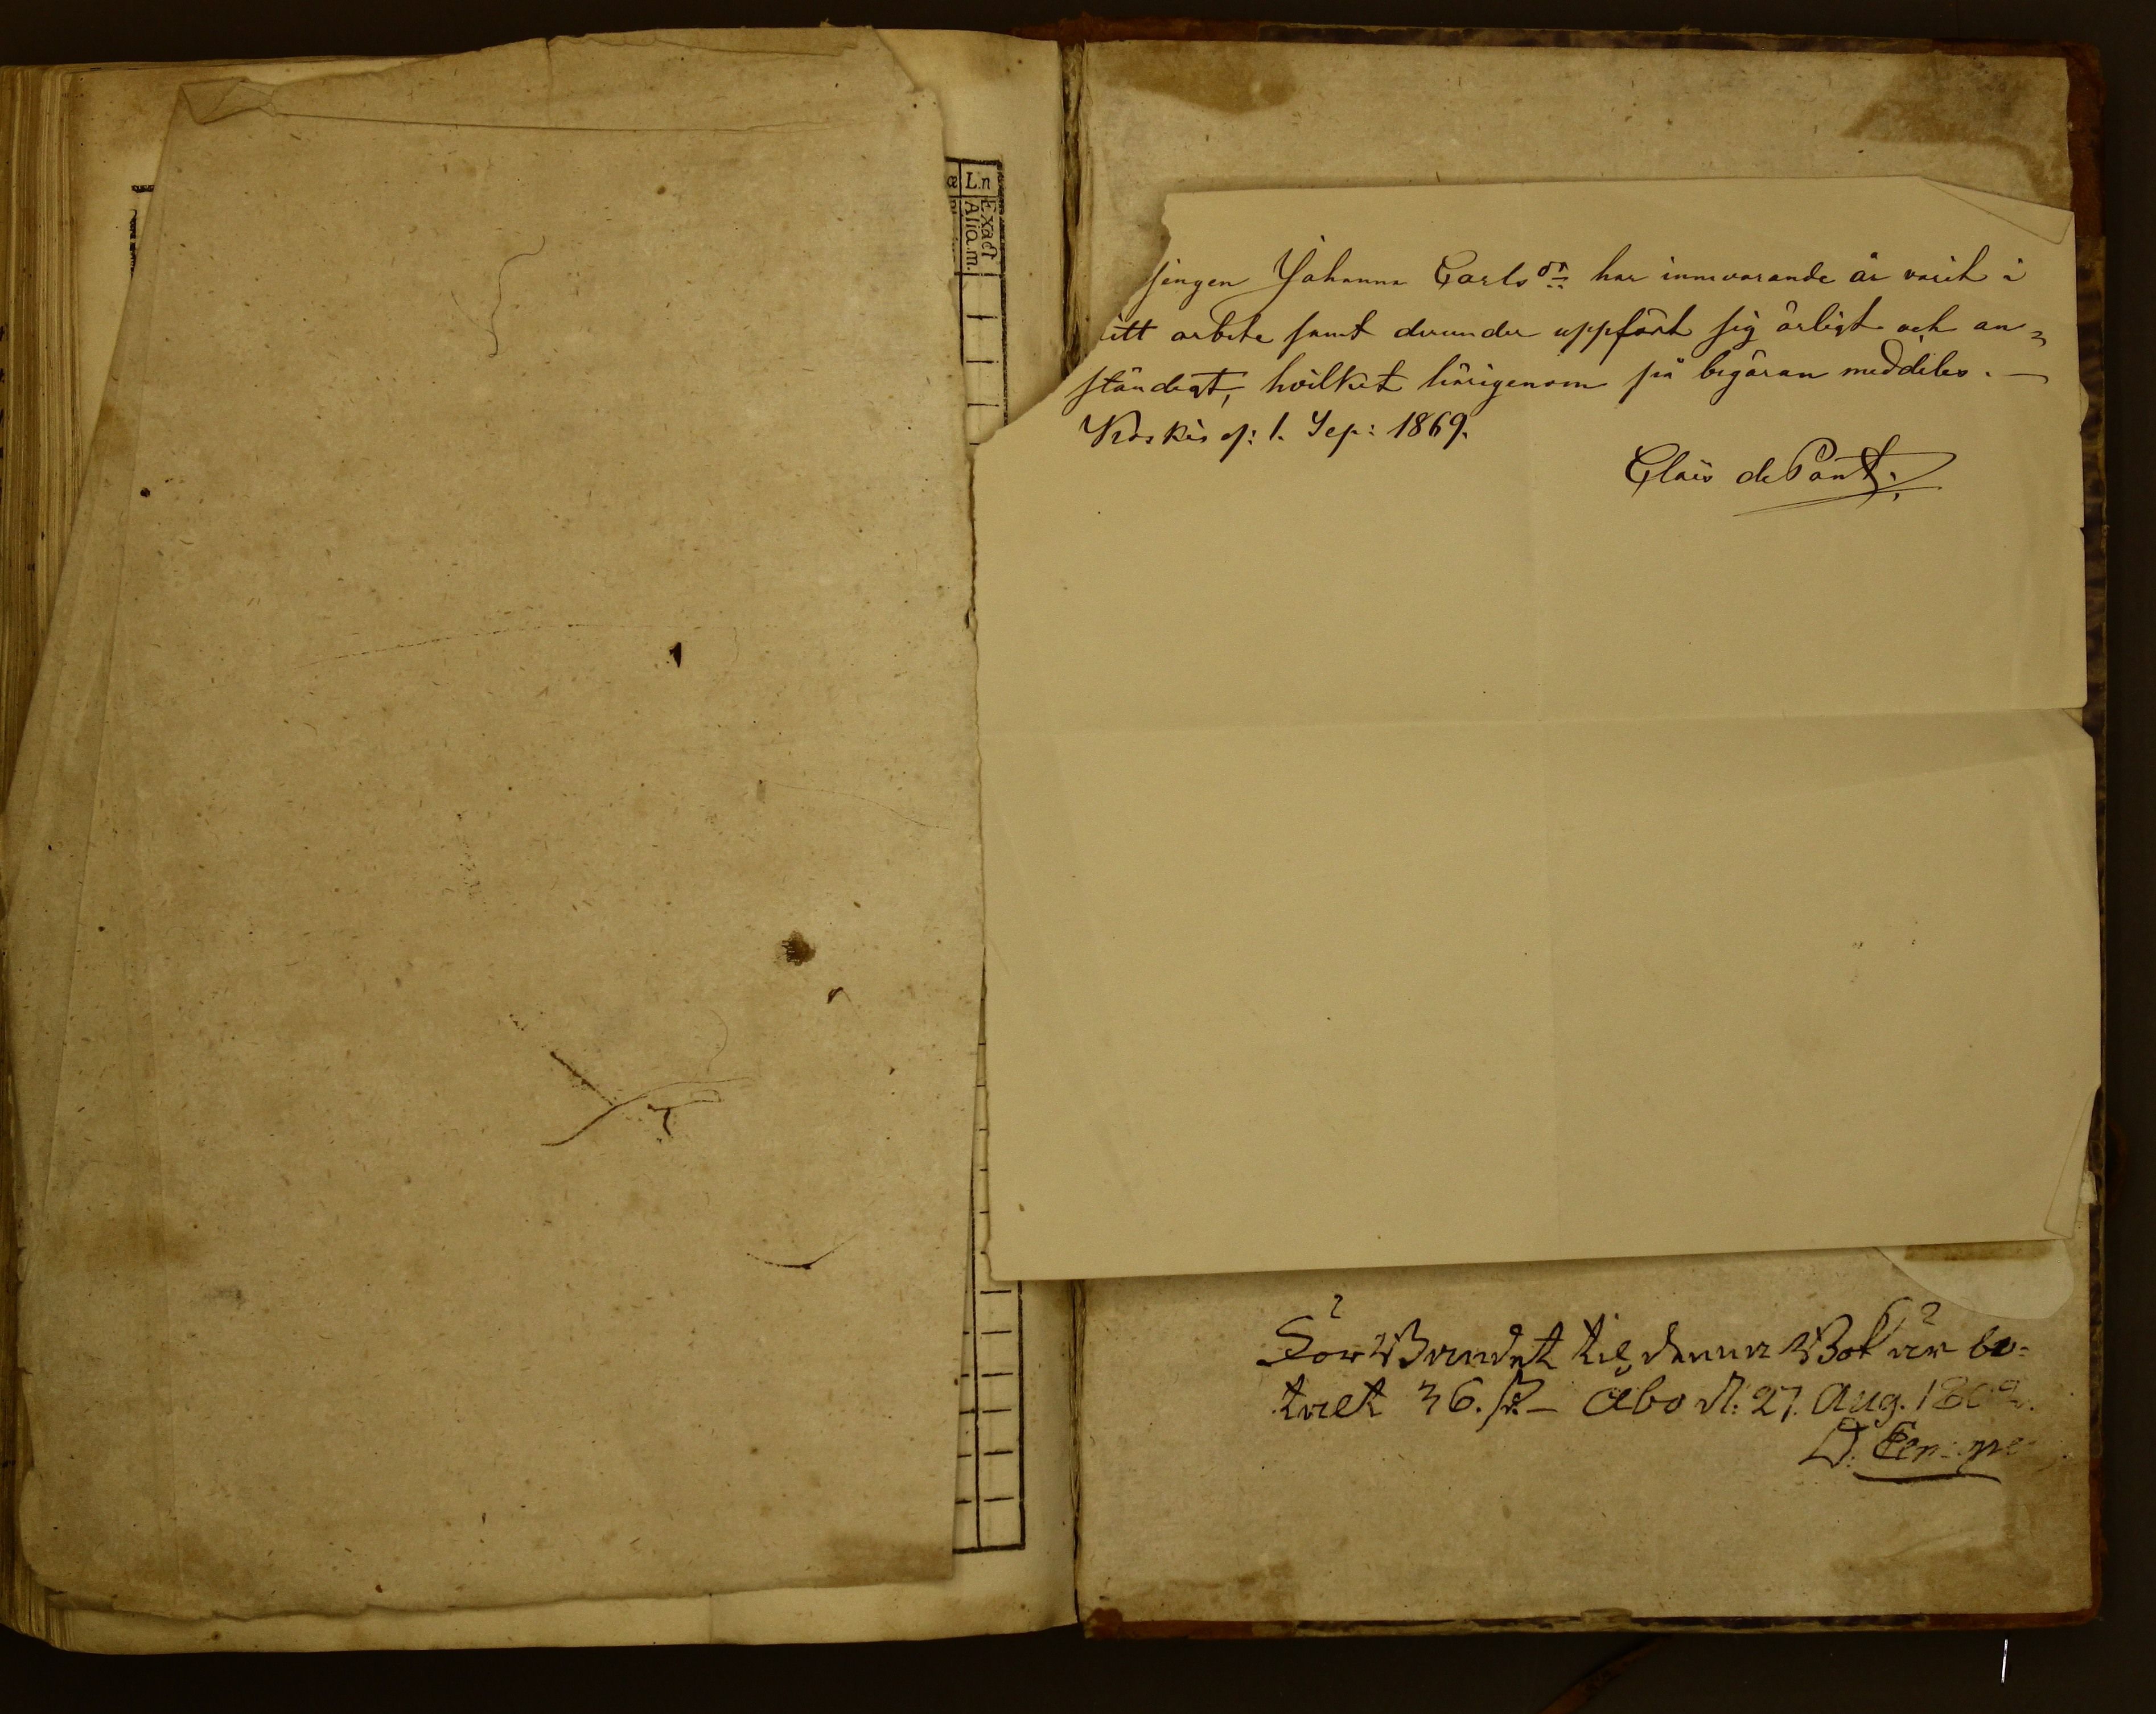 Ln
Exact
Alia.m.
Johanna Carlsdr har innevarande år varit i
mitt arbete samt derunder uppfört sig ärligt och an=
ständigt, hvilket härigenom på begäran meddeles. —
Koskis d: 1. Sep: 1869.
Claës de Pont.
För Bandet til denna Bok är be=
talt 36. s. — Åbo d: 27. Aug. 180